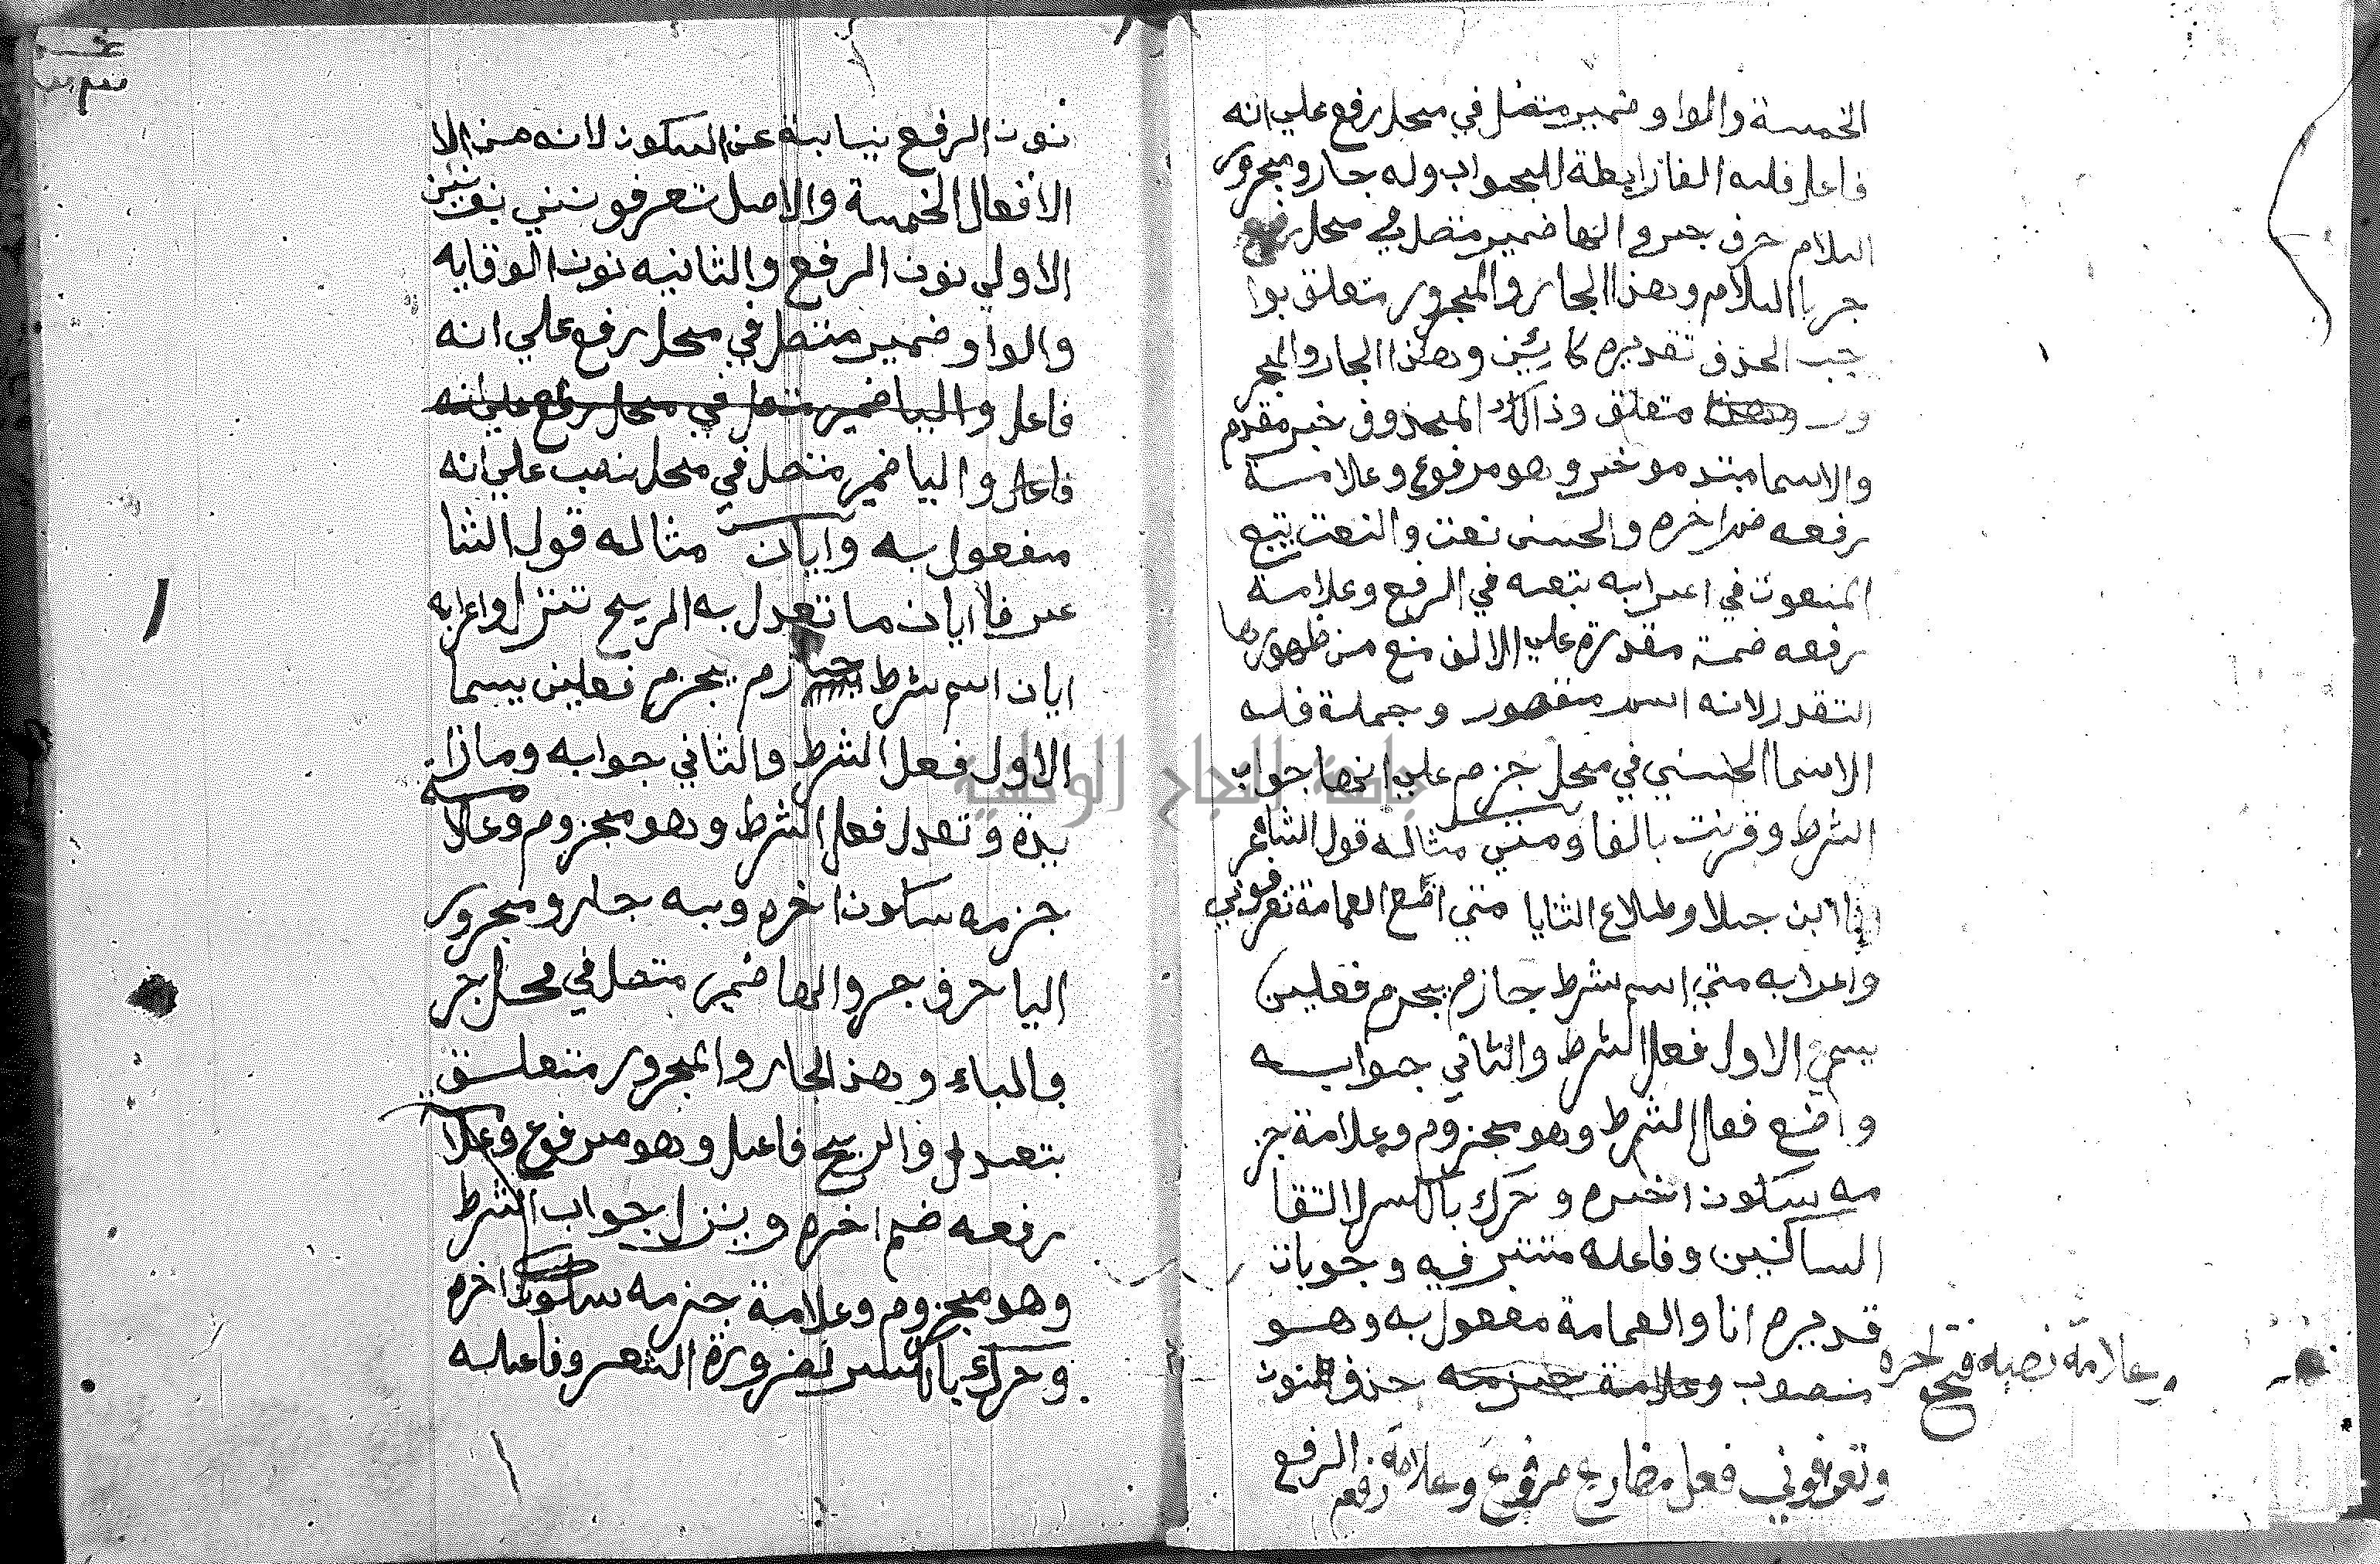 الخمسة والواو ضمير متصل في محل رفع علي انه
فاعل فله الفا رابطة للجواب وله جار ومجرور
اللام حرف جر والها ضمير متصل في محل
جر باللام وهذا الجار والمجرور متعلق بوا
جب الحذف تقديره كاين وهذا الجار والمجر
ور متعلق وذالك المحذوف خبر مقدم
والاسما مبتد موخر وهو مرفوع وعلامة
رفعه ضم اخره والحسنى نعت والنعت يتبع
المنعوت في اعرابه تبعه في الرفع وعلامة
رفعه ضمة مقدرة علي الالف منع من ظهورها
التقدر لانه اسم مقصور وجملة فله
الاسما الحسني في محل جزم علي انها جواب
الشرط وقرنت بالفا ومتي مثاله قول الشاعر
انا ابن جلا وطلاع الثنايا متي اضع العمامة تعرفوني
واعرابه متي اسم شرط جازم يجزم فعلين
يسمي الاول فعل الشرط والثاني جوابه
واضع فعل الشرط وهو مجزوم وعلامة جز
مه سكون اخره وحرك بالكسر لالتقا
الساكنين وفاعله مستتر فيه وجوبا ت
قديره انا والعمامة مفعول به وهو
منصوب وعلامة جزمه حذف النون
وعلامة نصبه فتح اخره
وتعرفوني فعل مضارع مرفوع وعلامة رفعه الرفع
نون الرفع نيابة عن السكون لانه من الا
الافعال الخمسة والاصل تعرفونني بنونين
الاولي نون الرفع والثانيه نون الوقايه
والواو ضمير متصل في محل رفع علي انه
فاعل واليا ضمير متصل في محل رفع علي انه
فاعل واليا ضمير متصل في محل نصب علي انه
مفعول به وايان مثاله قول الشا
عر فايان ما تعدل به الريح تنزل واعرابه
ايان اسم شرط جازم يجزم فعلين يسما
الاول فعل الشرط والثاني جوابه وما زا
يدة وتعدل فعل الشرط وهو مجزوم وعلامة
جزمه سكون اخره وبه جار ومجرور
اليا حرف جر والها ضمير متصل في محل جر
بالباء وهذ الجار والمجرور متعلق
بتعدل والريح فاعل وهو مرفوع وعلا
رفعه ضم اخره وينزل جواب الشرط
وهو مجزوم وعلامة جزمه سكون اخره
وحرك بالكسر لضرورة الشعر وفاعله
جامعة النجاح الوطنية